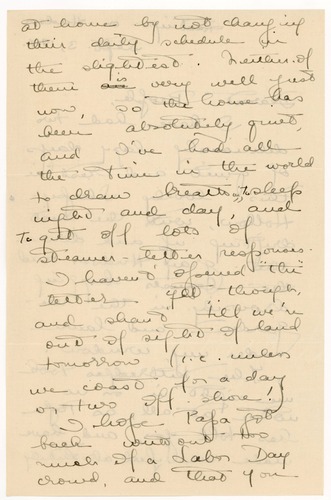 at home by not changing
their daily schedule in
the slightest. Neither of
them is very well just
now, so the house has
been absolutely quiet,
and I've had all
the time in the world
to draw breath, to sleep
night and day, and
to get off lots of
steamer-letter responses.
I haven't opened "the"
letter yet though,
and shan't till we're
out of sight of land
tomorrow (i.e. unless
we coast for a day
or two off shore!)
I hope Papa got
back without too
much of a Labor Day
crowd, and that you